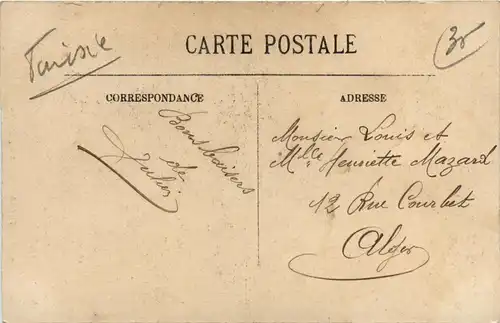 Tunisie
30
CARTE POSTALE
CORRESPONDANCE
Bons baisers
de
Julien
ADRESSE
Monsieur Louis et
Mlle Henriette Mazard
12 Rue Courbet
Alger